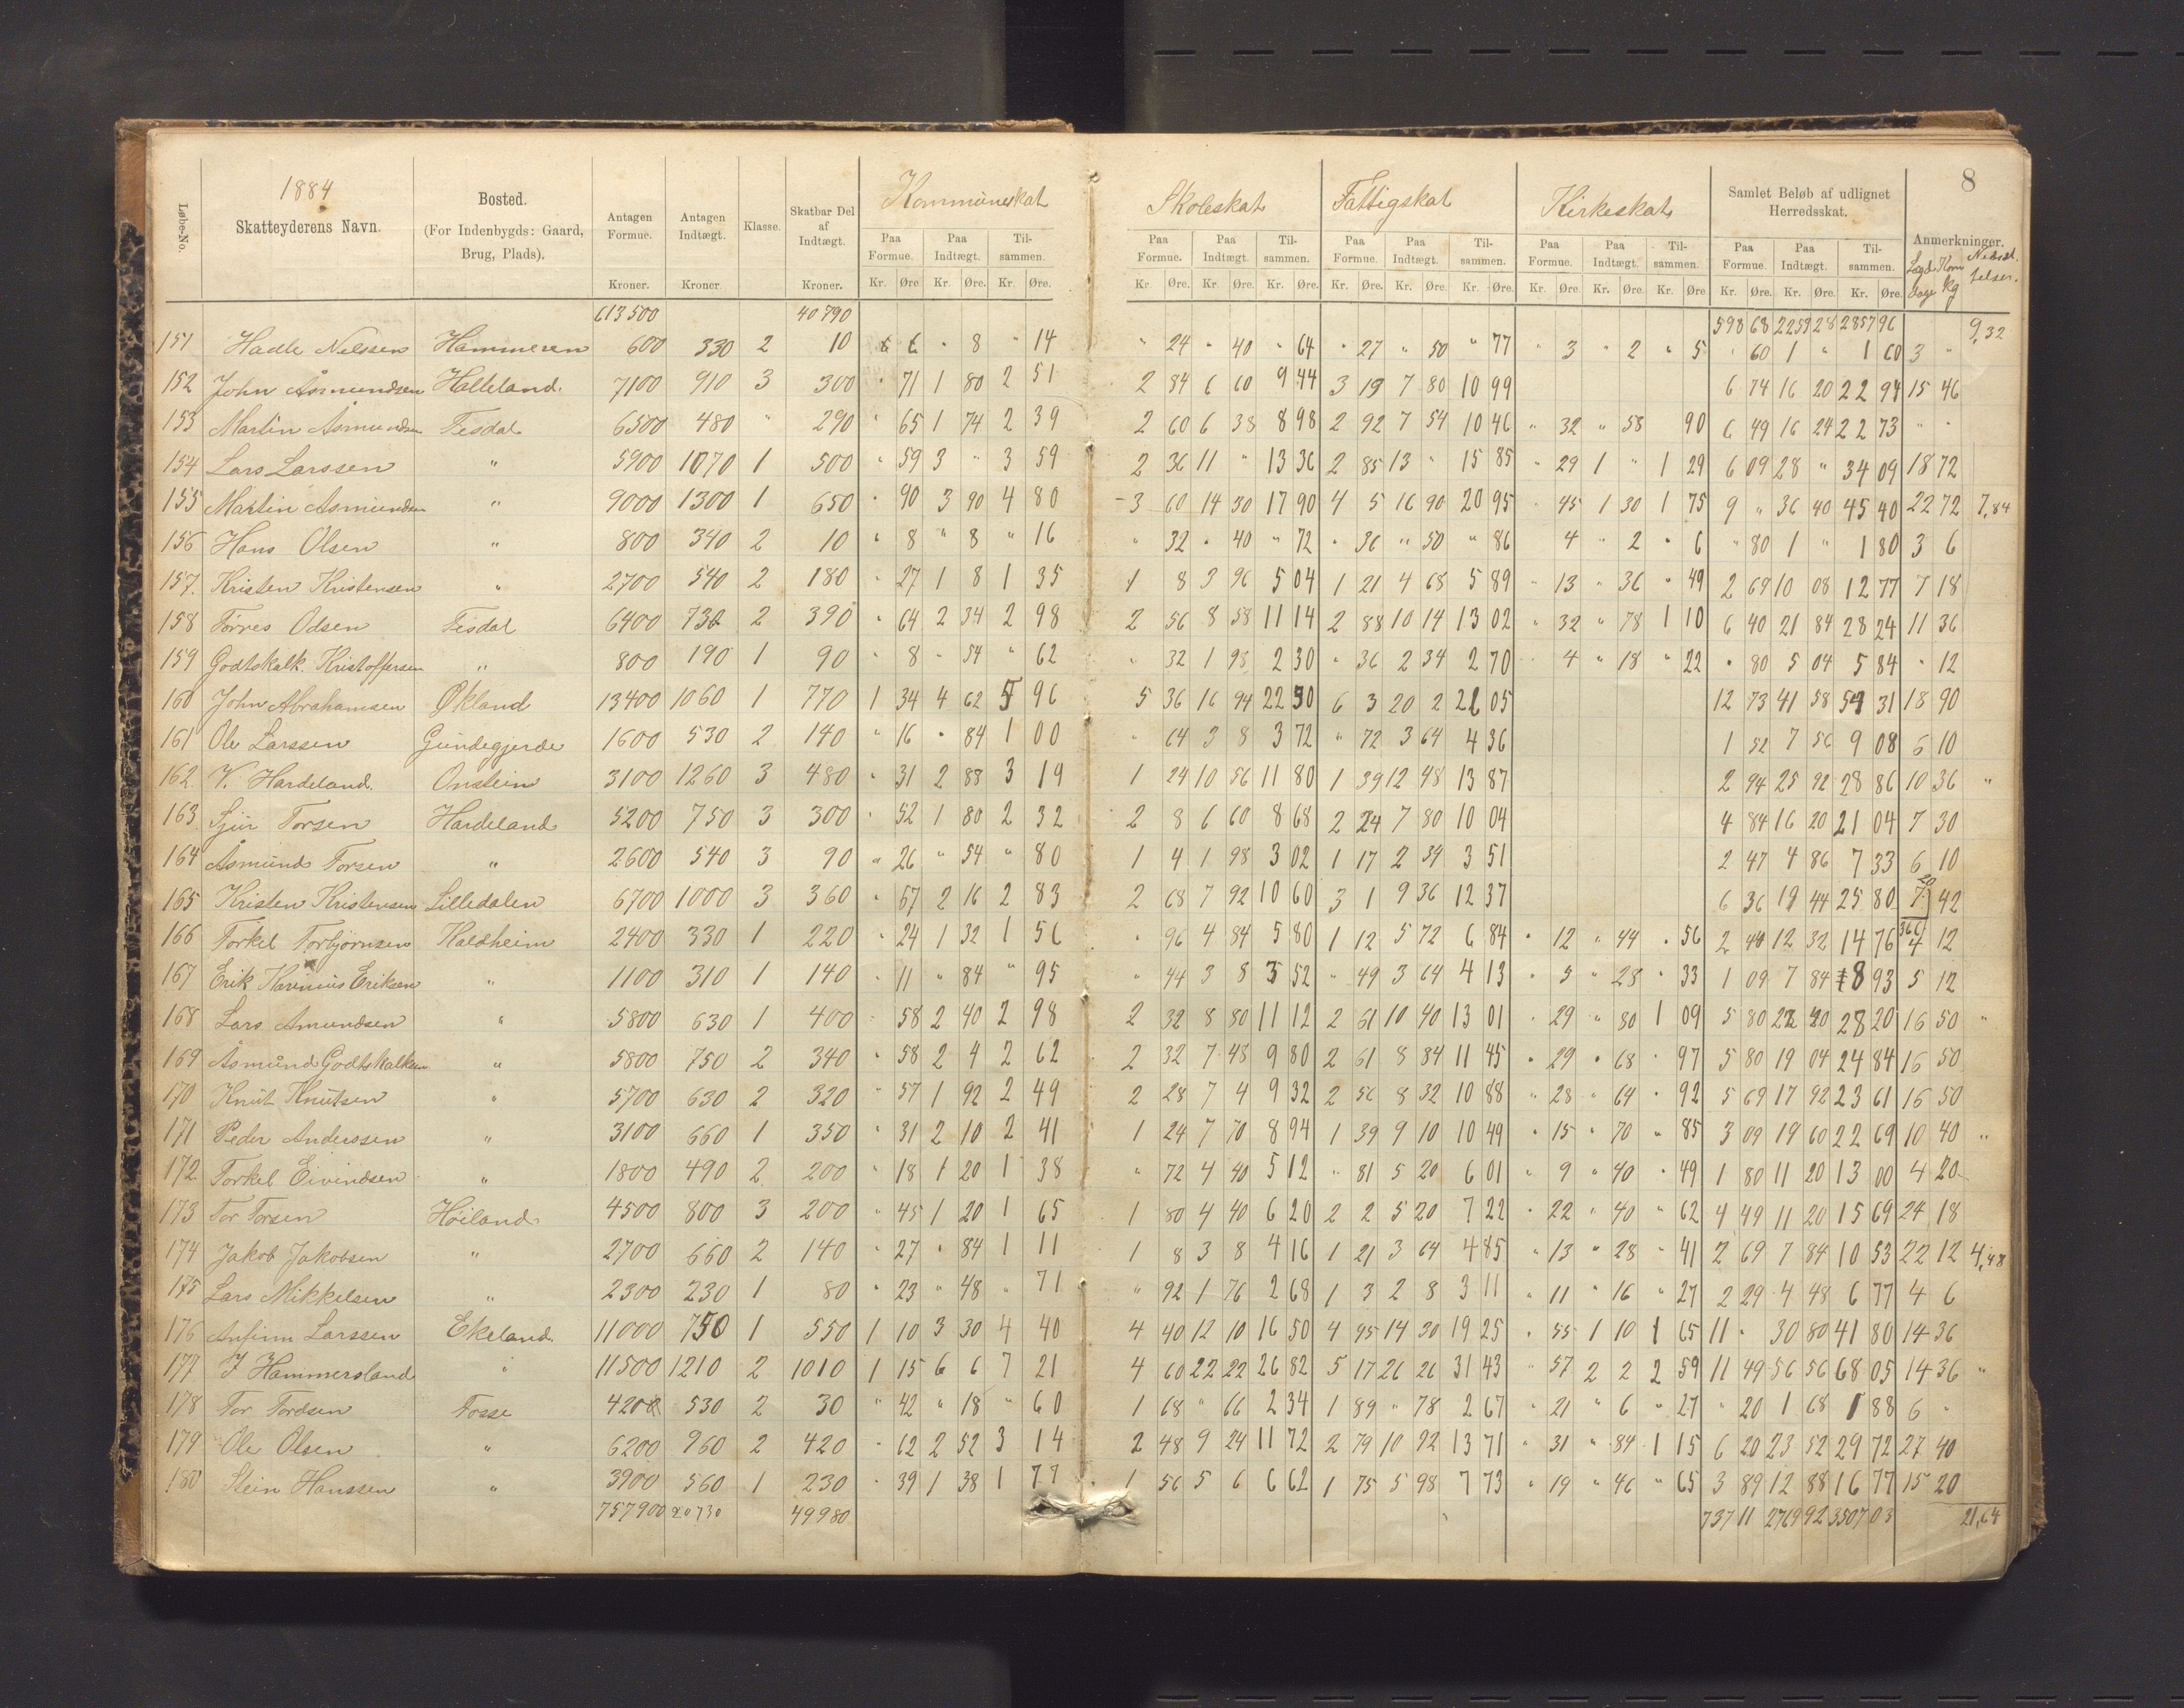 1884
8
Løbe-No. Skatteyderens Navn. Bosted. (For Indenbygds: Gaard, Brug, Plads). Antagen Formue. Antagen Indtægt. Klasse. Skatbar Del af Indtægt. Kommuneskat Skoleskat Fattigskat Kirkeskat Samlet Beløb af udlignet Herredsskat. Anmerkninger.
Paa Formue. Paa Indtægt. Til-sammen. Paa Formue. Paa Indtægt. Til-sammen. Paa Formue. Paa Indtægt. Til-sammen. Paa Formue. Paa Indtægt. Til-sammen. Paa Formue. Paa Indtægt. Til-sammen.
Kroner. Kroner. Kroner. Kr. Øre. Kr. Øre. Kr. Øre. Kr. Øre. Kr. Øre. Kr. Øre. Kr. Øre. Kr. Øre. Kr. Øre. Kr. Øre. Kr. Øre. Kr. Øre. Kr. Øre. Kr. Øre. Kr. Øre. Lægd dage Korn kg
613500 40790 598 68 2259 28 2857 96 9,32
151 Hadle Nelssen Hammeren 600 330 2 10 " 6 " 8 " 14 " 24 " 40 " 64 " 27 " 50 " 77 " 3 " 2 " 5 " 60 1 " 1 60 3 "
152 John Åsmundsen Halleland 7100 910 3 300 " 71 1 80 2 51 2 84 6 60 9 44 3 19 7 80 10 99 6 74 16 20 22 94 15 46
153 Martin Åsmundsen Tesdal 6500 480 " 290 " 65 1 74 2 39 2 60 6 38 8 98 2 92 7 54 10 46 " 32 " 58 90 6 49 16 24 22 73 " "
154 Lars Larssen " 5900 1070 1 500 " 59 3 " 3 59 2 36 11 " 13 36 2 85 13 " 15 85 " 29 1 " 1 29 6 09 28 " 34 09 18 72
155 Martin Asmundsen " 9000 1300 1 650 " 90 3 90 4 80 3 60 14 30 17 90 4 5 16 90 20 95 " 45 1 30 1 75 9 " 36 40 45 40 22 72 7,84
156 Hans Olsen " 800 340 2 10 " 8 " 8 " 16 " 32 " 40 " 72 " 36 " 50 " 86 4 " 2 " 6 " 80 1 " 1 80 3 6
157. Kristen Kristensen " 2700 540 2 180 " 27 1 8 1 35 1 8 3 96 5 04 1 21 4 68 5 89 " 13 " 36 " 49 2 69 10 08 12 77 7 18
158 Torres Odsen Tesdal 6400 730 2 390 " 64 2 34 2 98 2 56 8 58 11 14 2 88 10 14 13 02 " 32 " 78 1 10 6 40 21 84 28 24 11 36
159 Godtskalk Kristoffersen " 800 190 1 90 " 8 " 54 " 62 " 32 1 98 2 30 " 36 2 34 2 70 " 4 " 18 " 22 " 80 5 04 5 84 " 12
160 John Abrahamsen Økland 13400 1060 1 770 1 34 4 62 5 96 5 36 16 94 22 30 6 3 20 2 26 05 12 73 41 58 54 31 18 90
161 Ole Larssen Gundegjerde 1600 530 2 140 " 16 " 84 1 00 " 64 3 8 3 72 " 72 3 64 4 36 1 52 7 56 9 08 6 10
162. V. Hardeland. Onstein 3100 1260 3 480 " 31 2 88 3 19 1 24 10 56 11 80 1 39 12 48 13 87 2 94 25 92 28 86 10 36 "
163 Sjur Torsen Hardeland 5200 750 3 300 " 52 1 80 2 32 2 8 6 60 8 68 2 24 7 80 10 04 4 84 16 20 21 04 7 30
164 Åsmund Torsen " 2600 540 3 90 " 26 " 54 " 80 1 4 1 98 3 02 1 17 2 34 3 51 2 47 4 86 7 33 6 10
165 Kristen Kristensen Lilledalen 6700 1000 3 360 " 67 2 16 2 83 2 68 7 92 10 60 3 1 9 36 12 37 6 36 19 44 25 80 20 7 42
166 Torkel Torbjørnsen Haldheim 2400 330 1 220 " 24 1 32 1 56 " 96 4 84 5 80 1 12 5 72 6 84 " 12 " 44 " 56 2 44 12 32 14 76 4 12
167 Erik Eriksen " 1100 310 1 140 " 11 " 84 " 95 " 44 3 8 3 52 " 49 3 64 4 13 " 5 " 28 " 33 1 09 7 84 8 93 5 12
168 Lars Amundsen " 5800 630 1 400 " 58 2 40 2 98 2 32 8 80 11 12 2 61 10 40 13 01 " 29 " 80 1 09 5 80 22 40 28 20 16 50 "
169 Åsmund Godtskalksen " 5800 750 2 340 " 58 2 4 2 62 2 32 7 48 9 80 2 61 8 84 11 45 " 29 " 68 " 97 5 80 19 04 24 84 16 50
170 Knut Knutsen " 5700 630 2 320 " 57 1 92 2 49 2 28 7 4 9 32 2 56 8 32 10 88 " 28 " 64 " 92 5 69 17 92 23 61 16 50
171 Peder Anderssen " 3100 660 1 350 " 31 2 10 2 41 1 24 7 70 8 94 1 39 9 10 10 49 " 15 " 70 " 85 3 09 19 60 22 69 10 40 "
172. Torkel Eivindsen " 1800 490 2 200 " 18 1 20 1 38 " 72 4 40 5 12 " 81 5 20 6 01 " 9 " 40 " 49 1 80 11 20 13 00 4 20
173 Tor Torsen Høiland 4500 800 3 200 " 45 1 20 1 65 1 80 4 40 6 20 2 2 5 20 7 22 " 22 " 40 " 62 4 49 11 20 15 69 24 18
174 Jakob Jakobsen " 2700 660 2 140 " 27 " 84 1 11 1 8 3 8 4 16 1 21 3 64 4 85 " 13 " 28 " 41 2 69 7 84 10 53 22 12 4,48
175 Lars Mikkelsen " 2300 230 1 80 " 23 " 48 " 71 " 92 1 76 2 68 1 3 2 8 3 11 " 11 " 16 " 27 2 29 4 48 6 77 4 6
176 Anfinn Larssen Ekeland. 11000 750 1 550 1 10 3 30 4 40 4 40 12 10 16 50 4 95 14 30 19 25 " 55 1 10 1 65 11 " 30 80 41 80 14 36
177 J Hammersland " 11500 1210 2 1010 1 15 6 6 7 21 4 60 22 22 26 82 5 17 26 26 31 43 " 57 2 2 2 59 11 49 56 56 68 05 14 36 "
178 Tor Tordsen Fosse 4200 530 2 30 " 42 " 18 " 60 1 68 " 66 2 34 1 89 " 78 2 67 " 21 " 6 " 27 " 20 1 68 1 88 6 "
179 Ole Olsen " 6200 960 2 420 " 62 2 52 3 14 2 48 9 24 11 72 2 79 10 92 13 71 " 31 " 84 1 15 6 20 23 52 29 72 27 40
180 Stein Hanssen " 3900 560 1 230 " 39 1 38 1 77 1 56 5 6 6 62 1 75 5 98 7 73 " 19 " 46 " 65 3 89 12 88 16 77 15 20
757900 20730 49980 737 11 2769 92 3507 03 21,64